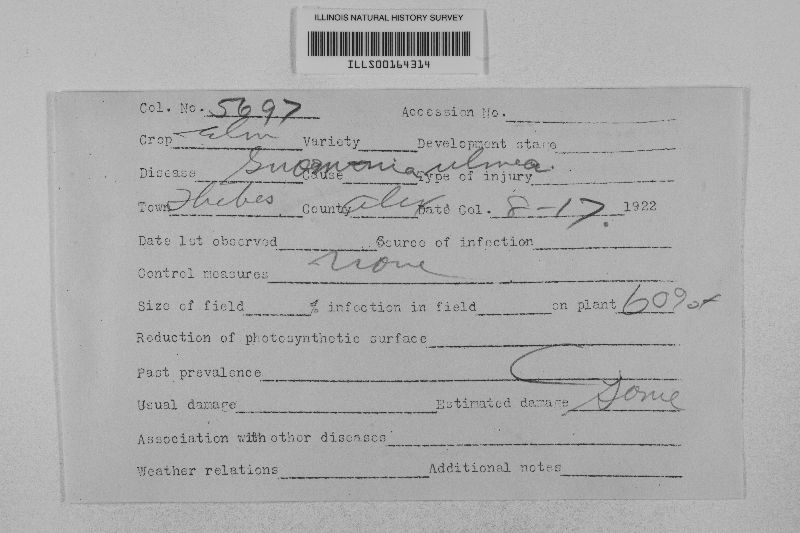 ILLINOIS NATURAL HISTORY SURVEY
ILLS00164314
Col. No. 5697 Accession No.
Crop elm Variety Development stage
Disease Gnomonia ulmea Cause Type of injury
Town Thebes County Alex Date Col. 8-17. 1922
Date 1st observed Source of infection
Control measures None
Size of field % infection in field on plant 60%
Reduction of photosynthetic surface
Past prevalence
Usual damage Estimated damage Some
Association with other diseases
Weather relations Additional notes